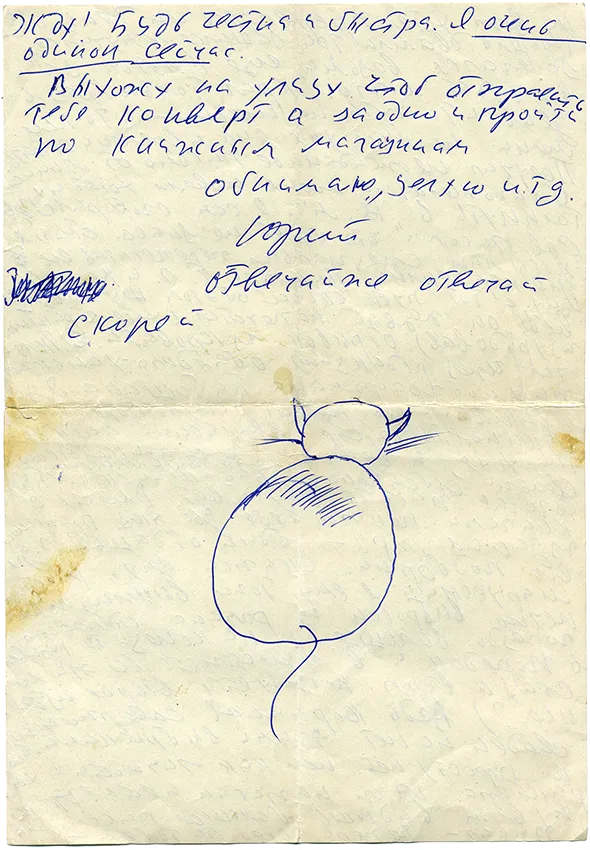 Жду! Будь честна и быстра. Я очень
одинок сейчас.
Выхожу на улицу чтоб отправить
тебе конверт а заодно и пройти
по книжным магазинам
обнимаю, целую и т.д.
Юрий
отвечай же отвечай
скорей